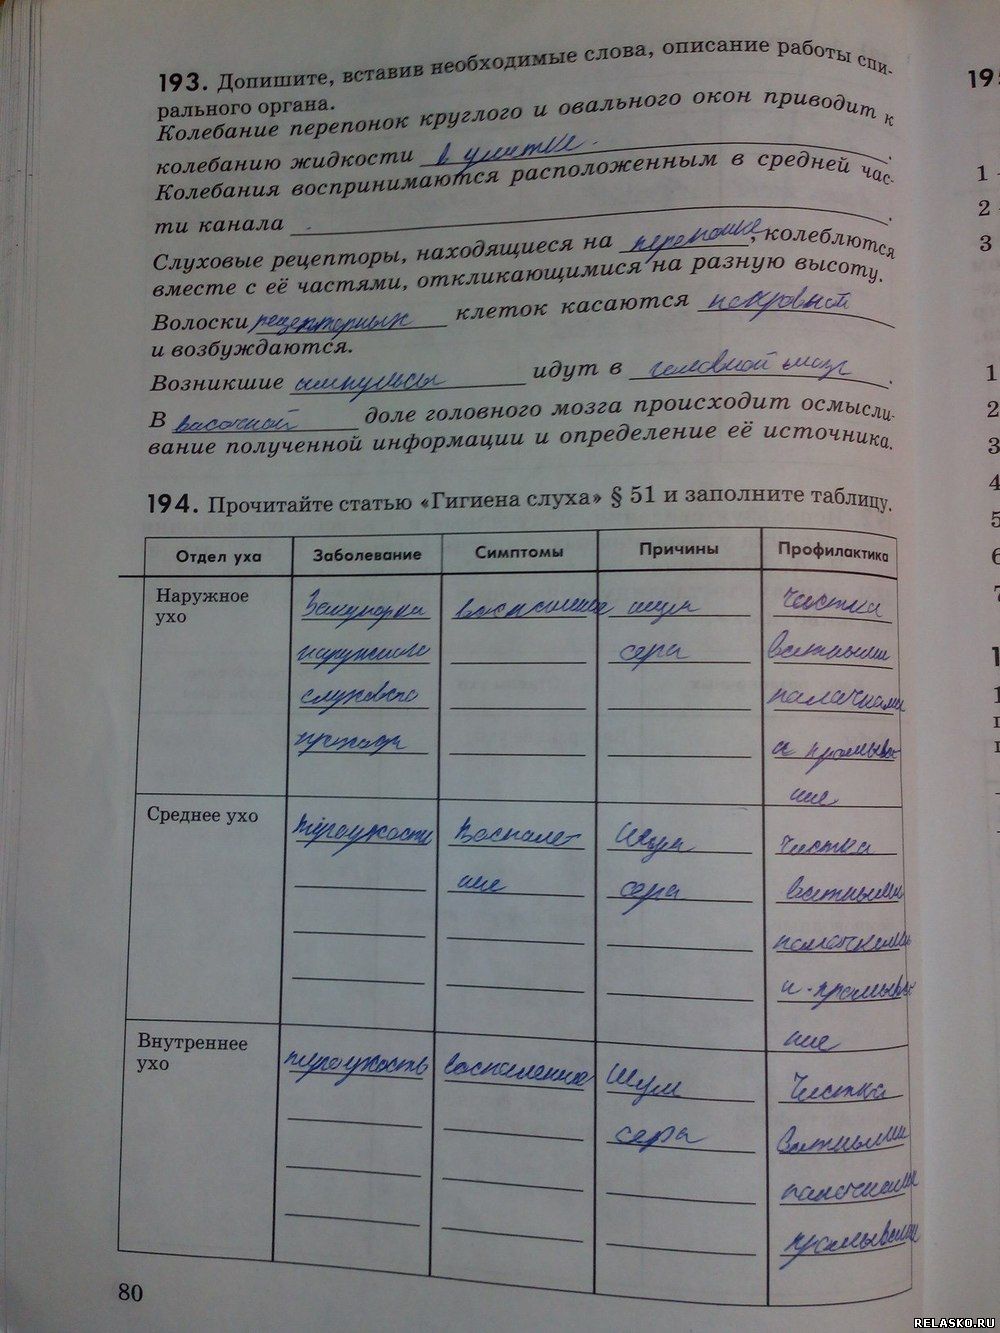 193. Допишите, вставив необходимые слова, описание работы спи-
рального органа.
Колебание перепонок круглого и овального окон приводит к
колебанию жидкости в улитке.
Колебания воспринимаются расположенным в средней час-
ти канала
Слуховые рецепторы, находящиеся на перепонке, колеблются
вместе с её частями, откликающимися на разную высоту.
Волоски рецепторных клеток касаются покровной
и возбуждаются.
Возникшие импульсы идут в головной мозг.
В височной доле головного мозга происходит осмысли-
вание полученной информации и определение её источника.
194. Прочитайте статью «Гигиена слуха» § 51 и заполните таблицу.
Отдел уха Заболевание Симптомы Причины Профилактика
Наружное Закупорка воспаление шум чистка
ухо
наружного сера ватными
слухового палочками
прохода и промыва-
ние
Среднее ухо тугоухость Воспале- Шум чистка
ние сера ватными
палочками
и промыва-
ние
Внутреннее
ухо тугоухость воспаление Шум Чистка
сера ватными
палочками
промывание
80
RELASKO.RU